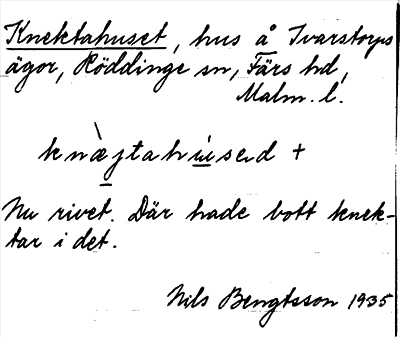 Knektahuset, hus å Ivarstorps
ägor, Röddinge sn, Färs hd,
Malm. l.
knæ̀jtahúsəd +
Nu rivet. Där hade bott knek-
tar i det.
Nils Bengtsson 1935